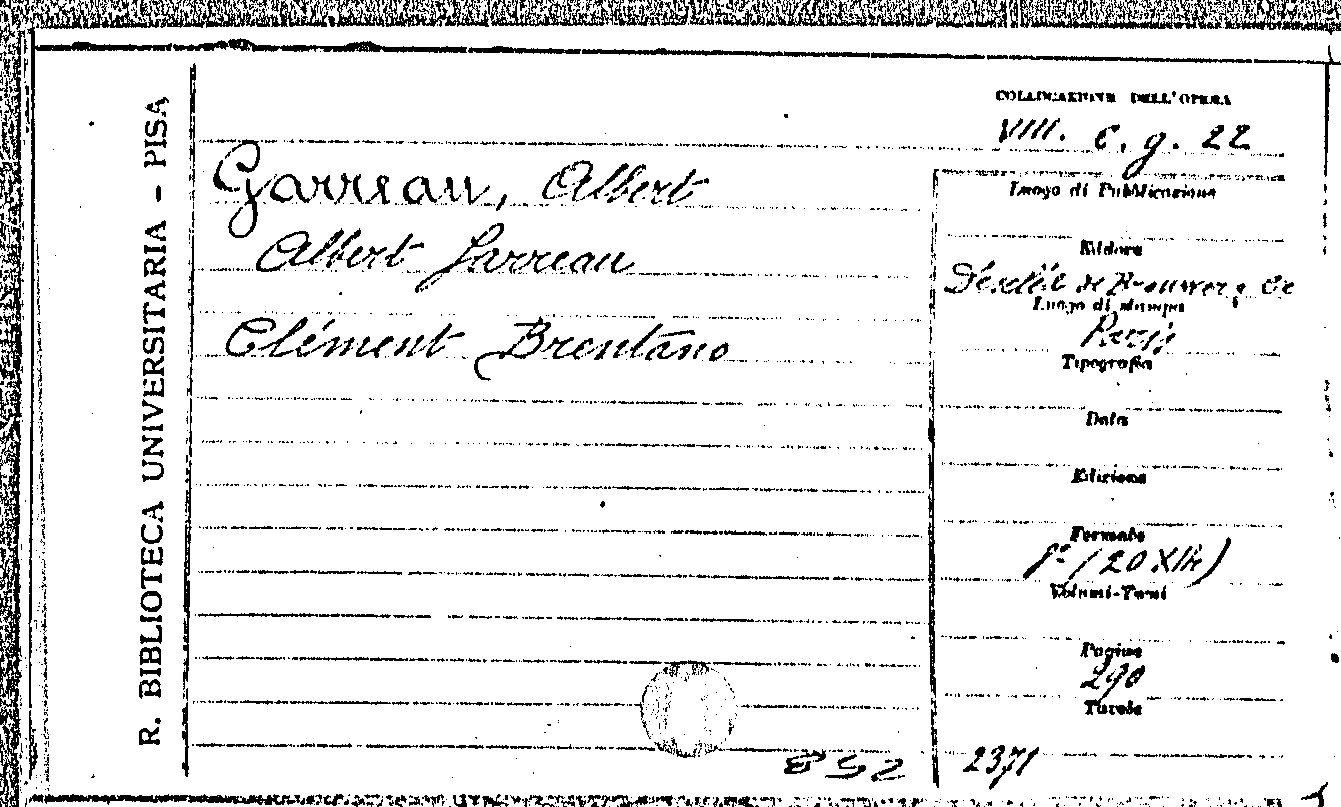 R. BIBLIOTECA UNIVERSITARIA - PISA
COLLOCAZIONE DELL'OPERA
VIII. c. g. 22
Garreau, Albert
Albert Garreau
Clément Brentano
Luogo di Pubblicazione
Editore
Desclée de Brouwer e Cie
Luogo di stampa
Paris
Tipografia
Data
Edizione
Formato
8° (20 X
Volumi-Tomi
Pagine
290
Tavole
852
2371